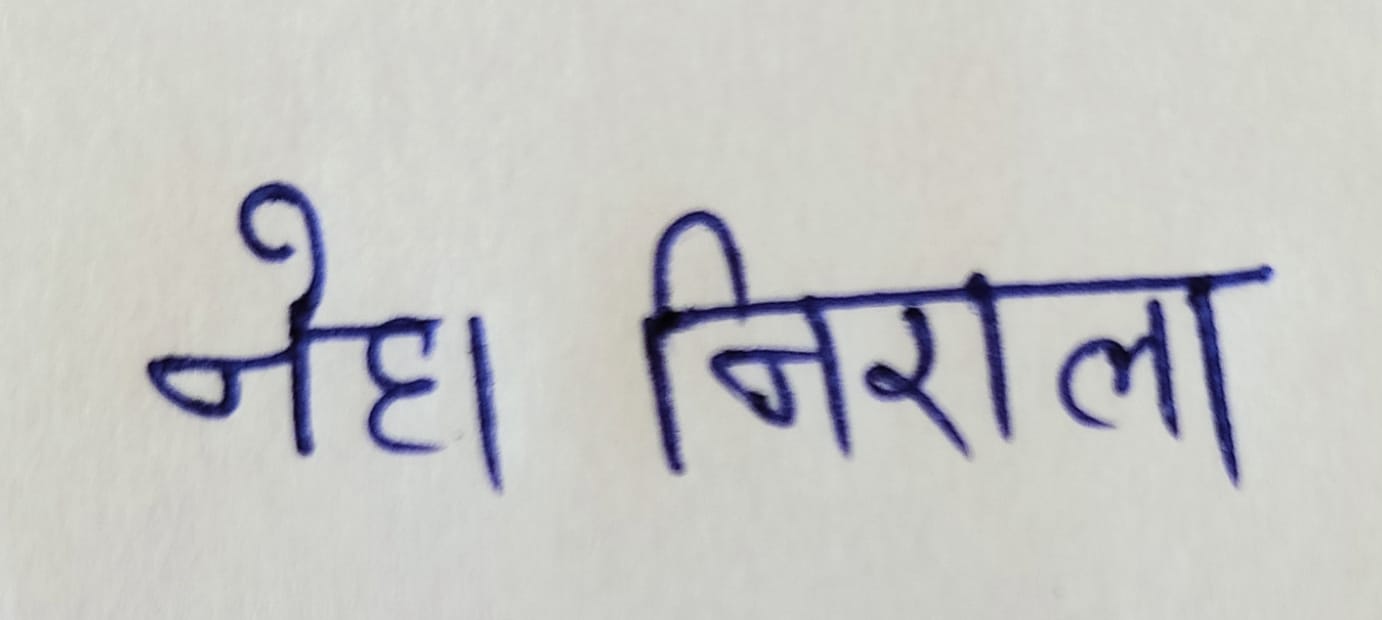 नेहा निराला